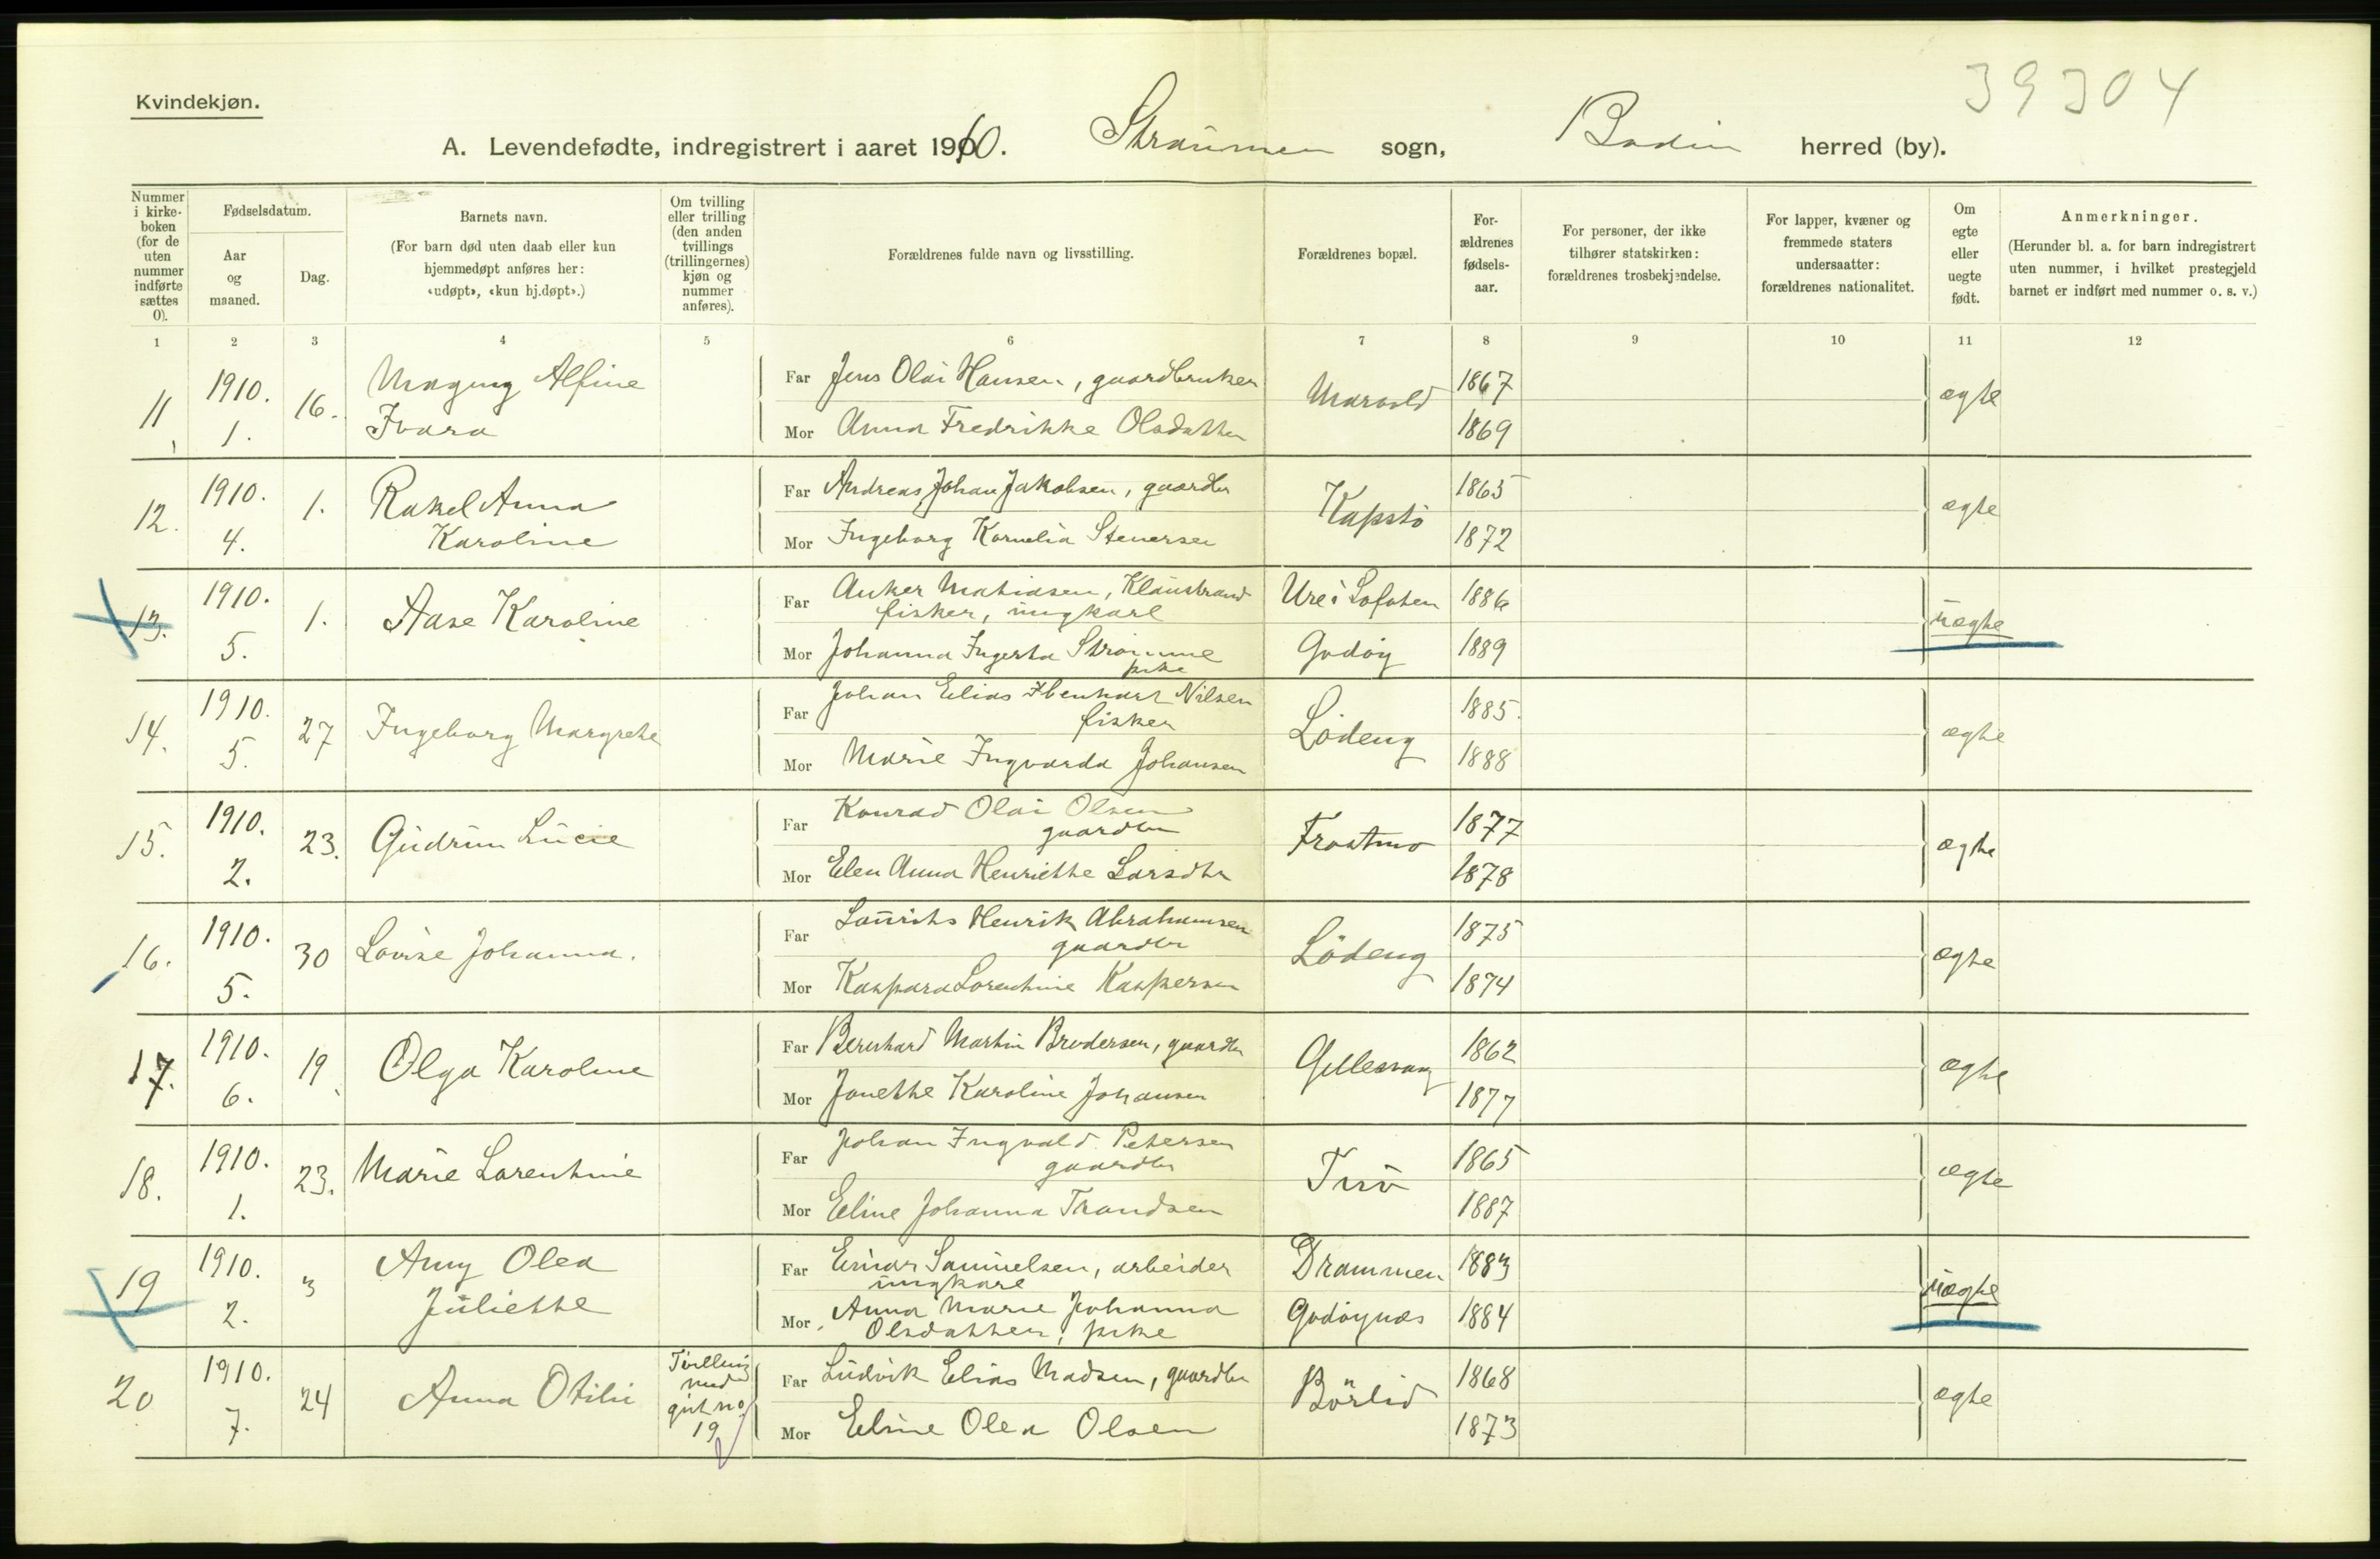 39304
Kvindekjøn.
A. Levendefødte, indregistrert i aaret 1910. Straumen sogn, Bodin herred (by).
Nummer i kirkeboken (for de uten nummer indførte sættes 0).
Fødselsdatum.
Aar og maaned.
Dag.
Barnets navn.
(For barn død uten daab eller kun hjemmedøpt anføres her: «udøpt», «kun hj.døpt».)
Om tvilling eller trilling (den anden tvillings (trillingernes) kjøn og nummer anføres).
Forældrenes fulde navn og livsstilling.
Forældrenes bopæl.
Forældrenes fødselsaar.
For personer, der ikke tilhører statskirken: forældrenes trosbekjendelse.
For lapper, kvæner og fremmede staters undersaatter: forældrenes nationalitet.
Om egte eller uegte født.
Anmerkninger.
(Herunder bl. a. for barn indregistrert uten nummer, i hvilket prestegjeld barnet er indført med nummer o. s. v.)
1 2 3 4 5 6 7 8 9 10 11 12
11, 1910. 1. 16. Magny Alfine Ivara
Far Jens Olai Hansen, gaardbruker 1867
Mor Anna Fredrikke Olsdatter 1869
ægte
12. 1910. 4. 1. Rakel Anna Karoline
Far Andreas Johan Jakobsen, gaardbr Kapstø 1865
Mor Ingeborg Kornelia Stenersen 1872
ægte
13. 1910. 5. 1. Aase Karoline
Far Anker Mathiasen, Klaustrand fisker, ungkarl Ure i Lofoten 1886
Mor Johanna Ingerta Strømme pike Godøy 1889
uægte
14. 1910. 5. 27 Ingeborg Margrethe
Far Johan Elias Nilsen fisker Lødeng 1885.
Mor Marie Ingvarda Johansen 1888
ægte
15. 1910. 2. 23. Gudrun Lucie
Far Konrad Olai Olsen gaardbr Frostmo 1877
Mor Elen Anna Henriette Larsdtr 1878
ægte
16. 1910. 5. 30 Lovise Johanna.
Far Laurits Henrik Abrahamsen gaardbr Lødeng 1875
Mor Kaspara Lorentine Kaspersen 1874
ægte
17. 1910. 6. 19 Olga Karoline
Far Bernhard Martin Brodersen, gaardbr Gillesvaag 1862
Mor Janette Karoline Johansen 1877
ægte
18. 1910. 1. 23. Marie Lorentine
Far Johan Ingvald Petersen gaardbr Tuv 1865
Mor Eline Johanna Trondsen 1887
ægte
19 1910. 2. 3 Amy Olea Juliette
Far Einar Samuelsen, arbeider ungkare Drammen 1883
Mor Anna Marie Johanna Olsdatter, pike Godøynes 1884
uægte
20 1910. 7. 24 Anna Otilie Tvilling med gut no 19
Far Ludvik Elias Madsen, gaardbr Børlid 1868
Mor Eline Olea Olsen 1873
ægte